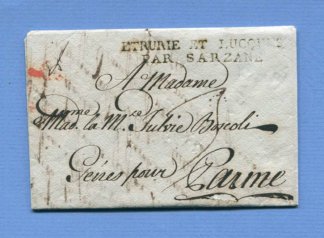 ETRURIE ET LUCQUES
PAR SARZANE
A Madame
Mad.me la M.se Fulvie Boscoli
Gênes pour Parme